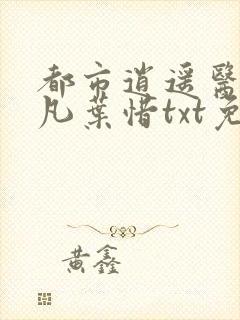 都市逍遥醫
凡葉惜txt免
黄鑫